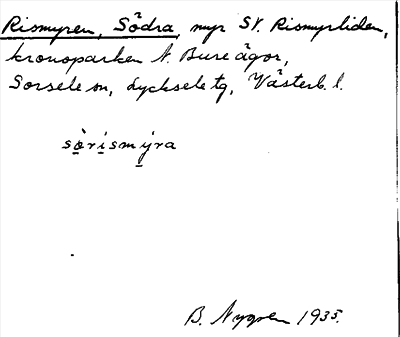 Rismyren, Södra, myr SV. Rismyrliden,
kronoparken N. Bure ägor,
Sorsele sn, Lycksele tg, Västerb. l.
sörismýra
B. Nygren 1935.